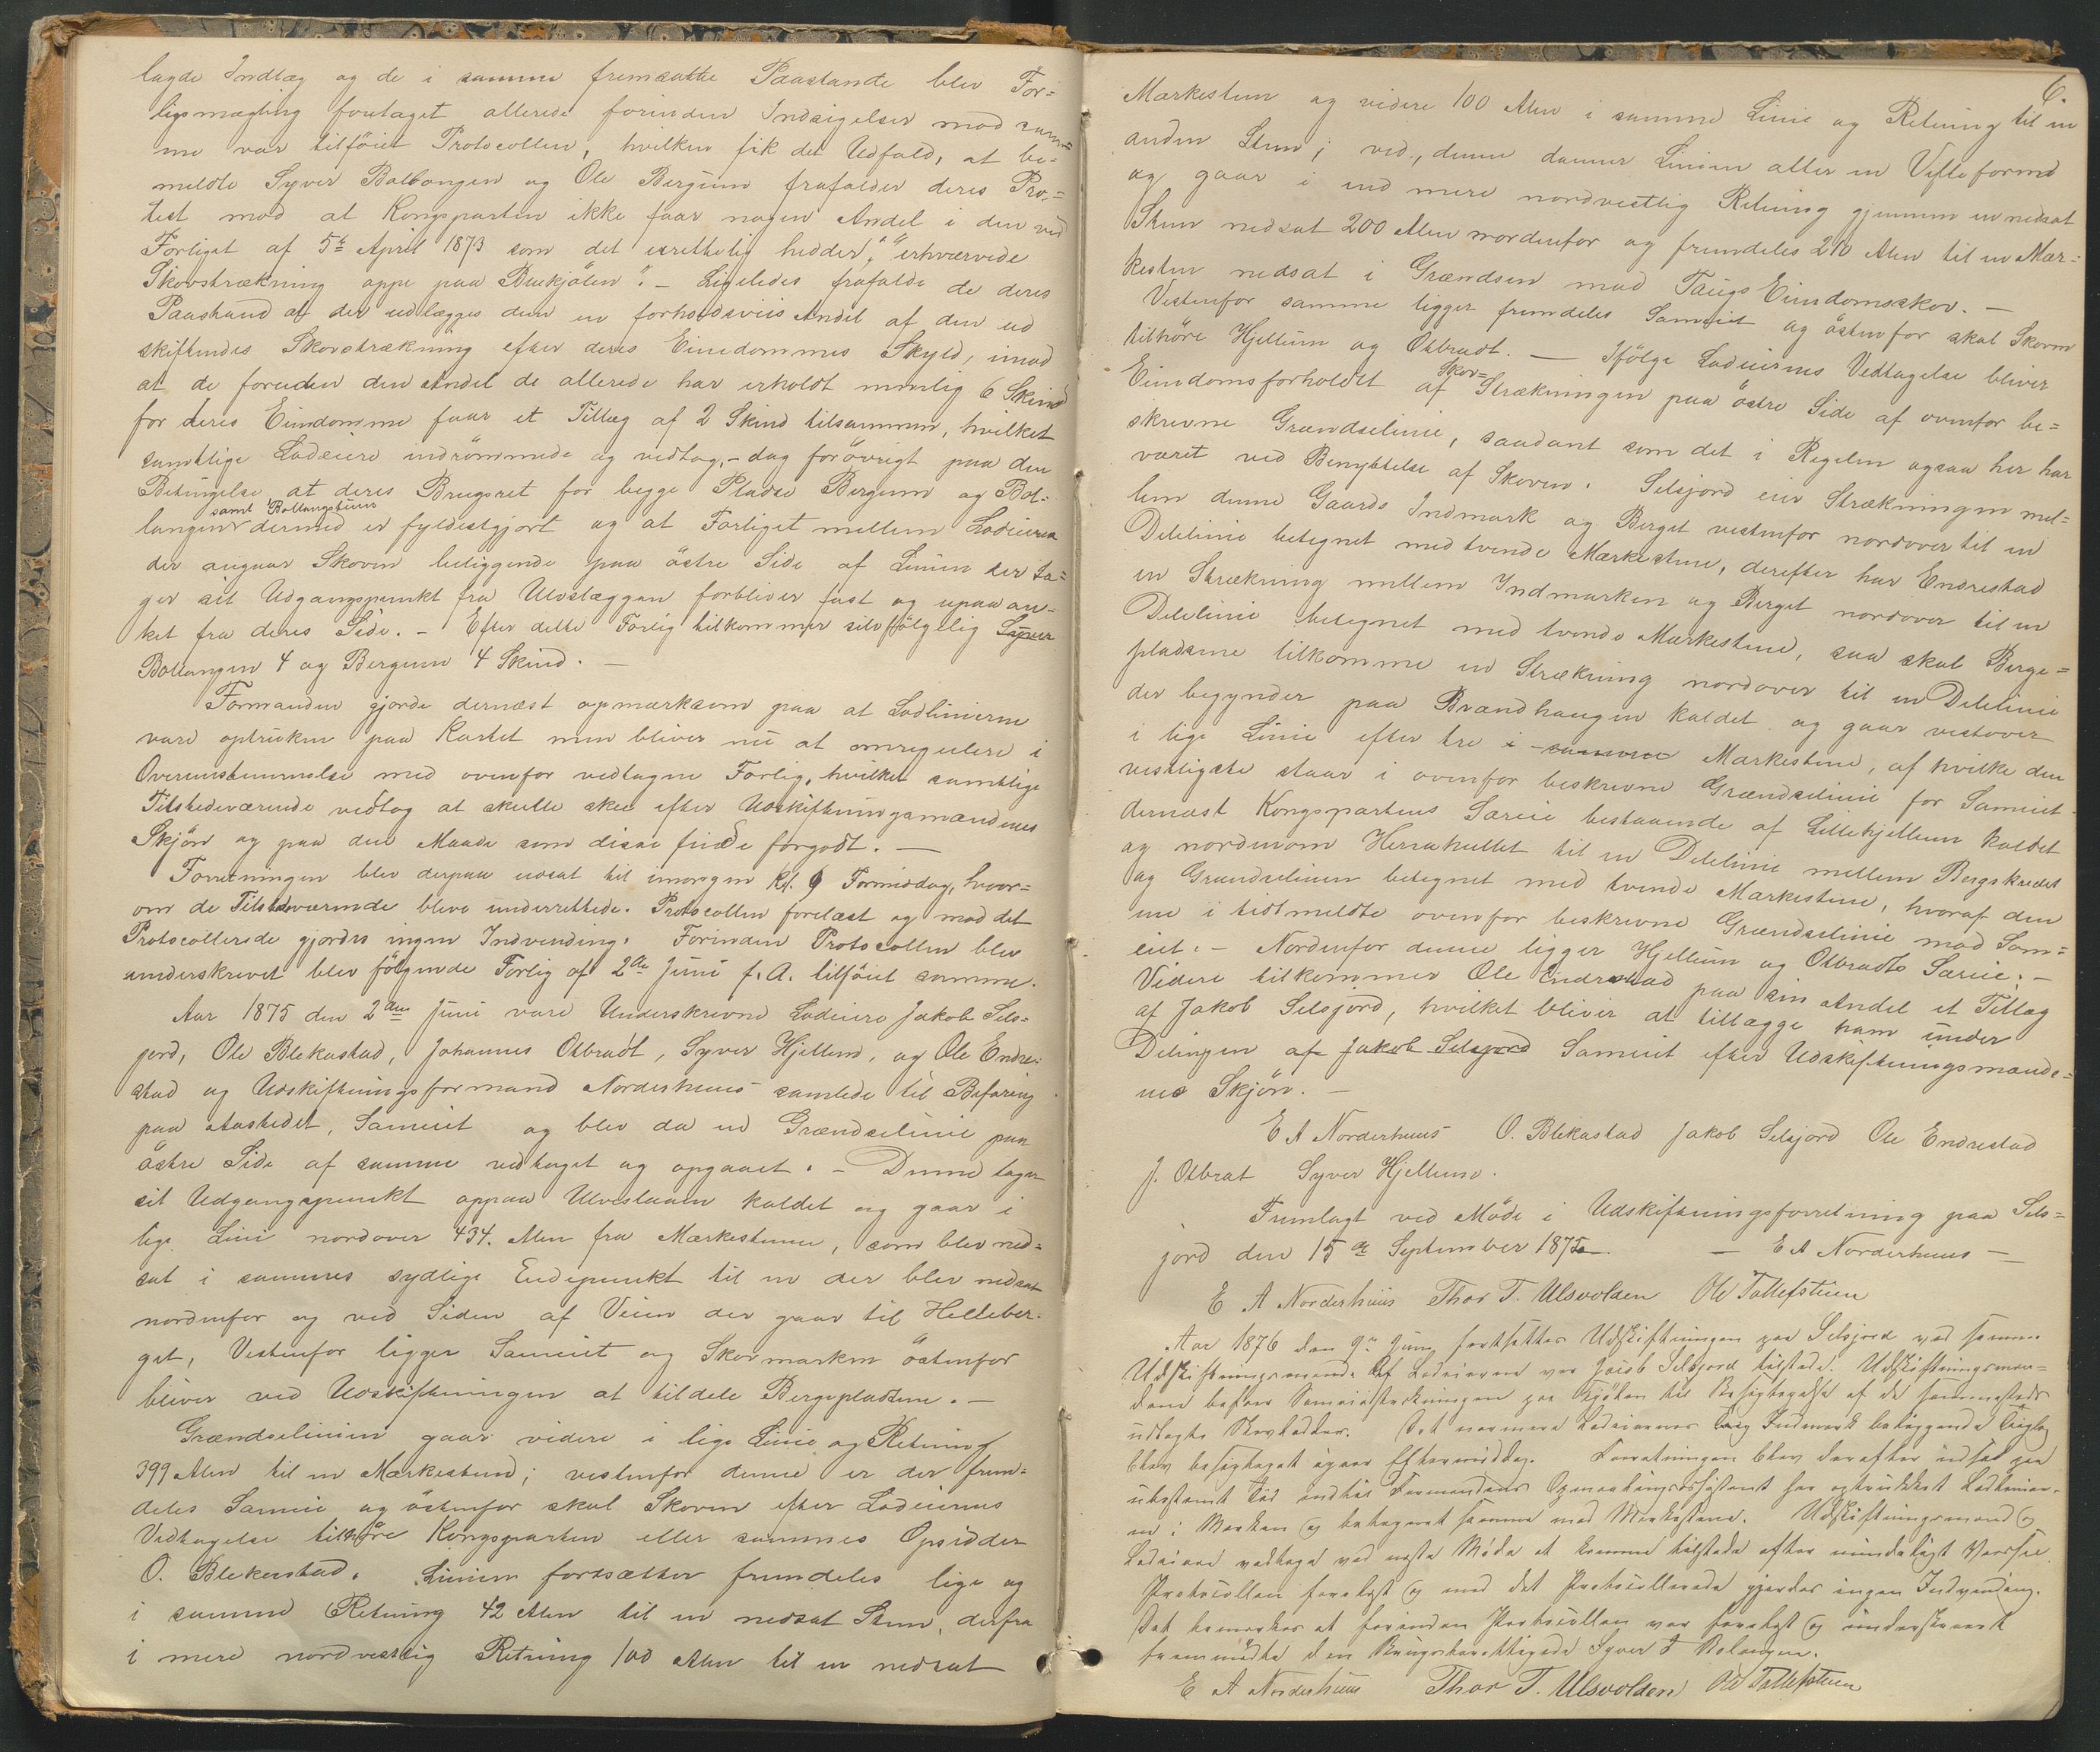 lagde Indlæg og de i samme fremsatte Paastande blev For=
ligsmægling foretaget allerede forinden Indsigelser mod sam=
me var tilföiet Protocollen, hvilken fik det Udfald, at be=
meldte Syver Bollongen og Ole Bergum frafalder deres Pro=
test mod at Kongsparten ikke faar nogen Andel i den ved
Forliget af 5te April 1873 som det urettelig hedder, "erhværvede
Skovstrækning oppe paa Buekjölen". – Ligeledes frafaldt de deres
Paastand at der udlægges dem en forholdsviis Andel af den ud
skiftendes Skovstrækning efter deres Eiendommes Skyld, imod
at de foruden den Andel de allerede har erholdt nemlig 6 Skind
for deres Eiendomme faar et Tillæg af 2 Skind tilsammen, hvilket
samtlige Lodeiere indrömmede og vedtog, – dog forövrigt paa den
Betingelse, at deres Brugsret for begge Pladse Bergum og Bol=
samt Rollangstuen
langen dermed er fyldestgjort og at Forliget mellem Lodeierne
der angaar Skoven beliggende paa östre Side af Linien der ta=
ger sit Udgangspunkt fra Ulvslæggen forbliver fast og upaaan=
ket fra deres Side. – Efter dette Forlig tilkommer selvfölgelig Syver
Bollangen 4 og Bergum 4 Skind. –
Formanden gjorde dernæst opmærksom paa at Lodlinierne
vare optrukne paa Kartet men bliver nu at omregulere i
Overensstemmelse med ovenfor vedtagne Forlig, hvilket samtlige
Tilstedeværende vedtog at skulle skee efter Udskiftningsmændenes
Skjön og paa den Maade som disse finde forgodt. –
Forretningen blev derpaa udsat til imorgen Kl. 9 Formiddag, hvor=
om de Tilstedeværende bleve underrettede. Protocollen forelæst og mod det
Protocollerede gjordes ingen Indvending. Forinden Protocollen blev
underskrevet blev fölgende Forlig af 2den Juni f. A. tilföiet samme.
Aar 1875 den 2den Juni vare Underskrevne Lodeiere Jakob Sels=
jord, Ole Blekastad, Johannes Otbradt, Syver Hjellum, og Ole Endre=
stad og Udskiftningsformand Norderhuus samlede til Befaring
paa Aastedet, Sameiet og blev da en Grændselinie paa
östre Side af samme vedtaget og opgaaet. – Denne tager
sit Udgangspunkt oppaa Ulveslaaen kaldet og gaar i
lige Linie nordover 434 Alen fra Mærkestenene, som blev ned=
sat i sammes sydlige Endepunkt til en der blev nedsat
nordenfor og ved Siden af Veien der gaar til Helleber=
get, Vestenfor ligger Sameiet og Skovmarken östenfor
bliver ved Udskiftningen at tildele Bergepladsene. –
Grændselinien gaar videre i lige Linie og Retning
399 Alen til en Mærkesteen; vestenfor denne er der frem=
deles Sameie og östenfor skal Skoven efter Lodeiernes
Vedtagelse tilhöre Kongsparten eller sammes Opsidder
O. Blekastad. Linien fortsætter fremdeles lige og
i samme Retning 42 Alen til en nedsat Steen, derfra
i mere nordvestlig Retning 100 Alen til en nedsat
6.
Mærkesteen og videre 100 Alen i samme Linie og Retning til en
anden Steen; ved denne danner Linien atter en Vifteformd
og gaar i end mere nordvestlig Retning gjennem en nedsat
Steen nedsat 200 Alen nordenfor og fremdeles 210 Alen til en Mær=
kesten nedsat i Grændsen mod Taugs Eiendomsskov. –
Vestenfor samme ligger fremdeles Sameiet og östenfor skal Skoven
tilhöre Hjellum og Otbradt. – Ifölge Lodeiernes Vedtagelse bliver
Skov=
Eiendomsforholdet af Strækningen paa östre Side af ovenfor be=
skrevne Grændselinie, saadant som det i Regelen ogsaa her har
været ved Benyttelse af Skoven. Selsjord eier Strækningen mel=
lem denne Gaards Indmark og Berget vestenfor nordover til en
Delelinie betegnet med tvende Mærkestene, derefter har Endrestad
en Strækning mellem Indmarken og Berget nordover til en
Delelinie betegnet med tvende Mærkestene, saa skal Berge=
pladsene tilkomme en Strækning nordover til en Delelinie
der begynder paa Brændhaugen kaldet og gaar vestover
i lige Linie efter tre i samme Mærkestene, af hvilke den
vestligste staar i ovenfor beskrevne Grændselinie for Sameiet
dernæst Kongspartens Særeie bestaaende af Lillehjellum kaldet
og nordenom Herrahullet til en Delelinie mellem Bergskredet
og Grændselinien betegnet med tvende Mærkestene, hvoraf den
ene i tidtmeldte ovenfor beskrevne Grændselinie mod Sam=
eiet. – Nordenfor denne ligger Hjellum og Otbradts Særeie. –
Videre tilkommer Ole Endrestad paa sin Andel et Tillæg
af Jakob Selsjord, hvilket bliver at tillægge ham under
Delingen af Jakob Selsjord Sameiet efter Udskiftningsmænde=
nes Skjön. –
E A Norderhuus O. Blekastad Jakob Selsjord Ole Endrestad
J. Otbrat Syver Hjellum.
Fremlagt ved Möde i Udskiftningsforretning paa Sels=
jord den 15de September 1875. – E A Norderhuus –
E A Norderhuus Thor T. Ulsvolden Ole Tollefsteen
Aar 1876 den 9de Juny fortsattes Udskiftningen paa Selsjord ved samme
Udskiftningsmænd. Af Lodeierne var Jacob Selsjord tilstede. Udskiftningsmæn=
dene befoer Sameiestrækningen paa Kjölen til Besigtigelse af de sammesteds
udlagte Skovlodder. Det nærmere Lodeiernes Indmark beliggende
blev besigtiget igaar Eftermiddag. Forretningen blev derefter udsat paa
ubestemt Tid indtil Formandens Opmaalingsassistent har optrukket Lodlinier=
ne i Marken og betegnet samme med Merkestene. Udskiftningsmænd og
Lodeiere vedtoge ved næste Möde at komme tilstede efter mundtligt Varsel.
Protocollen forelæst og mod det Protocollerede gjordes ingen Indvending.
Det bemærkes at forinden Protocollen var forelæst og underskrevet
fremmödte den Brugsberettigede Syver T Bolangen.
E A Norderhuus Thor T. Ulsvolden Ole Tollefsteen